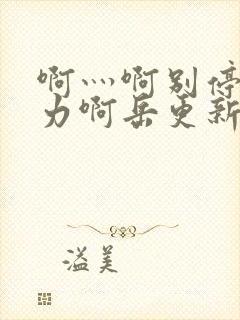 啊灬啊别停
力啊岳更新
溢美